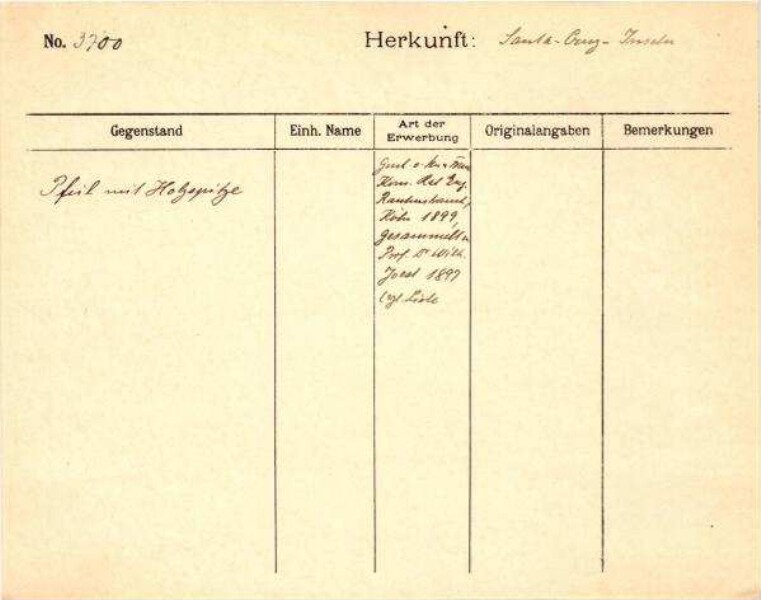 No. 3700
Herkunft: Santa-Cruz-Inseln
Gegenstand
Einh. Name
Art der Erwerbung
Originalangaben
Bemerkungen
Pfeil mit Holzspitze
Kom. Rat Eug.
Rautenstrauch,
Köln 1899,
gesammelt v.
Prof. Dr Wilh.
Joest 1897
vgl. Liste